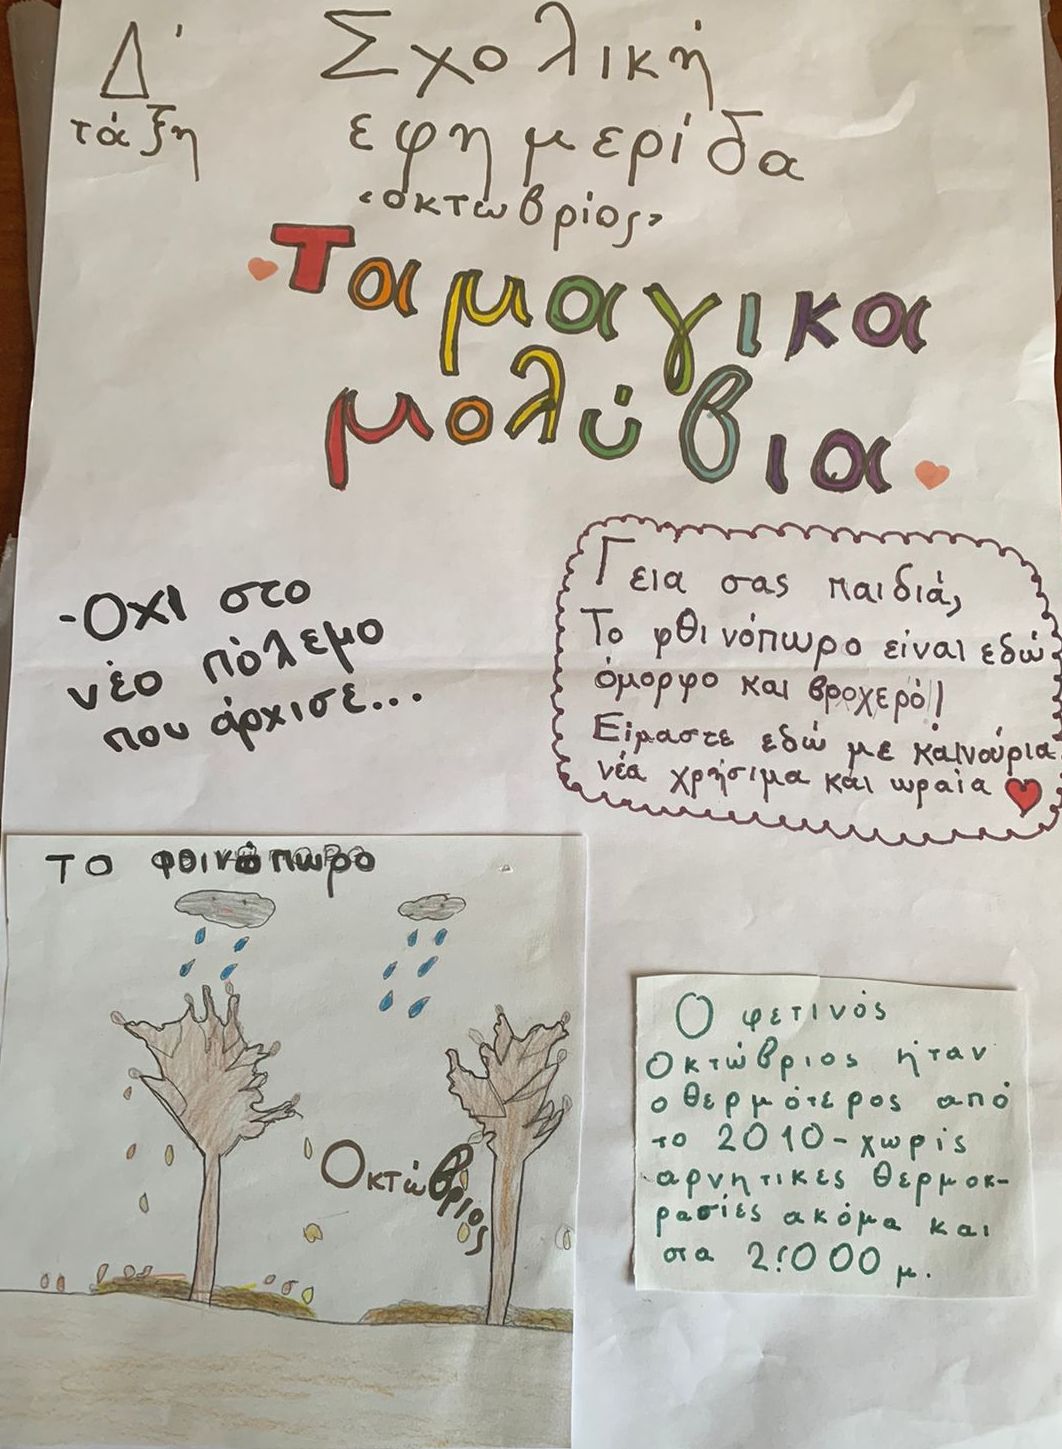 Δ'
τάξη
Σχολική
εφημερίδα
‹οκτώβριος›
Τα μαγικα
μολύβια
-ΟΧΙ στο
νέο πόλεμο
που άρχισε...
Γεια σας παιδιά,
Το φθινόπωρο είναι εδώ
όμορφο και βροχερό!
Είμαστε εδώ με καινούρια
νέα χρήσιμα και ωραία
το φθινόπωρο
Οκτώβριος
Ο φετινός
Οκτώβριος ήταν
ο θερμότερος από
το 2010-χωρίς
αρνητικές θερμοκ-
ρασίες ακόμα και
στα 2!000 μ.